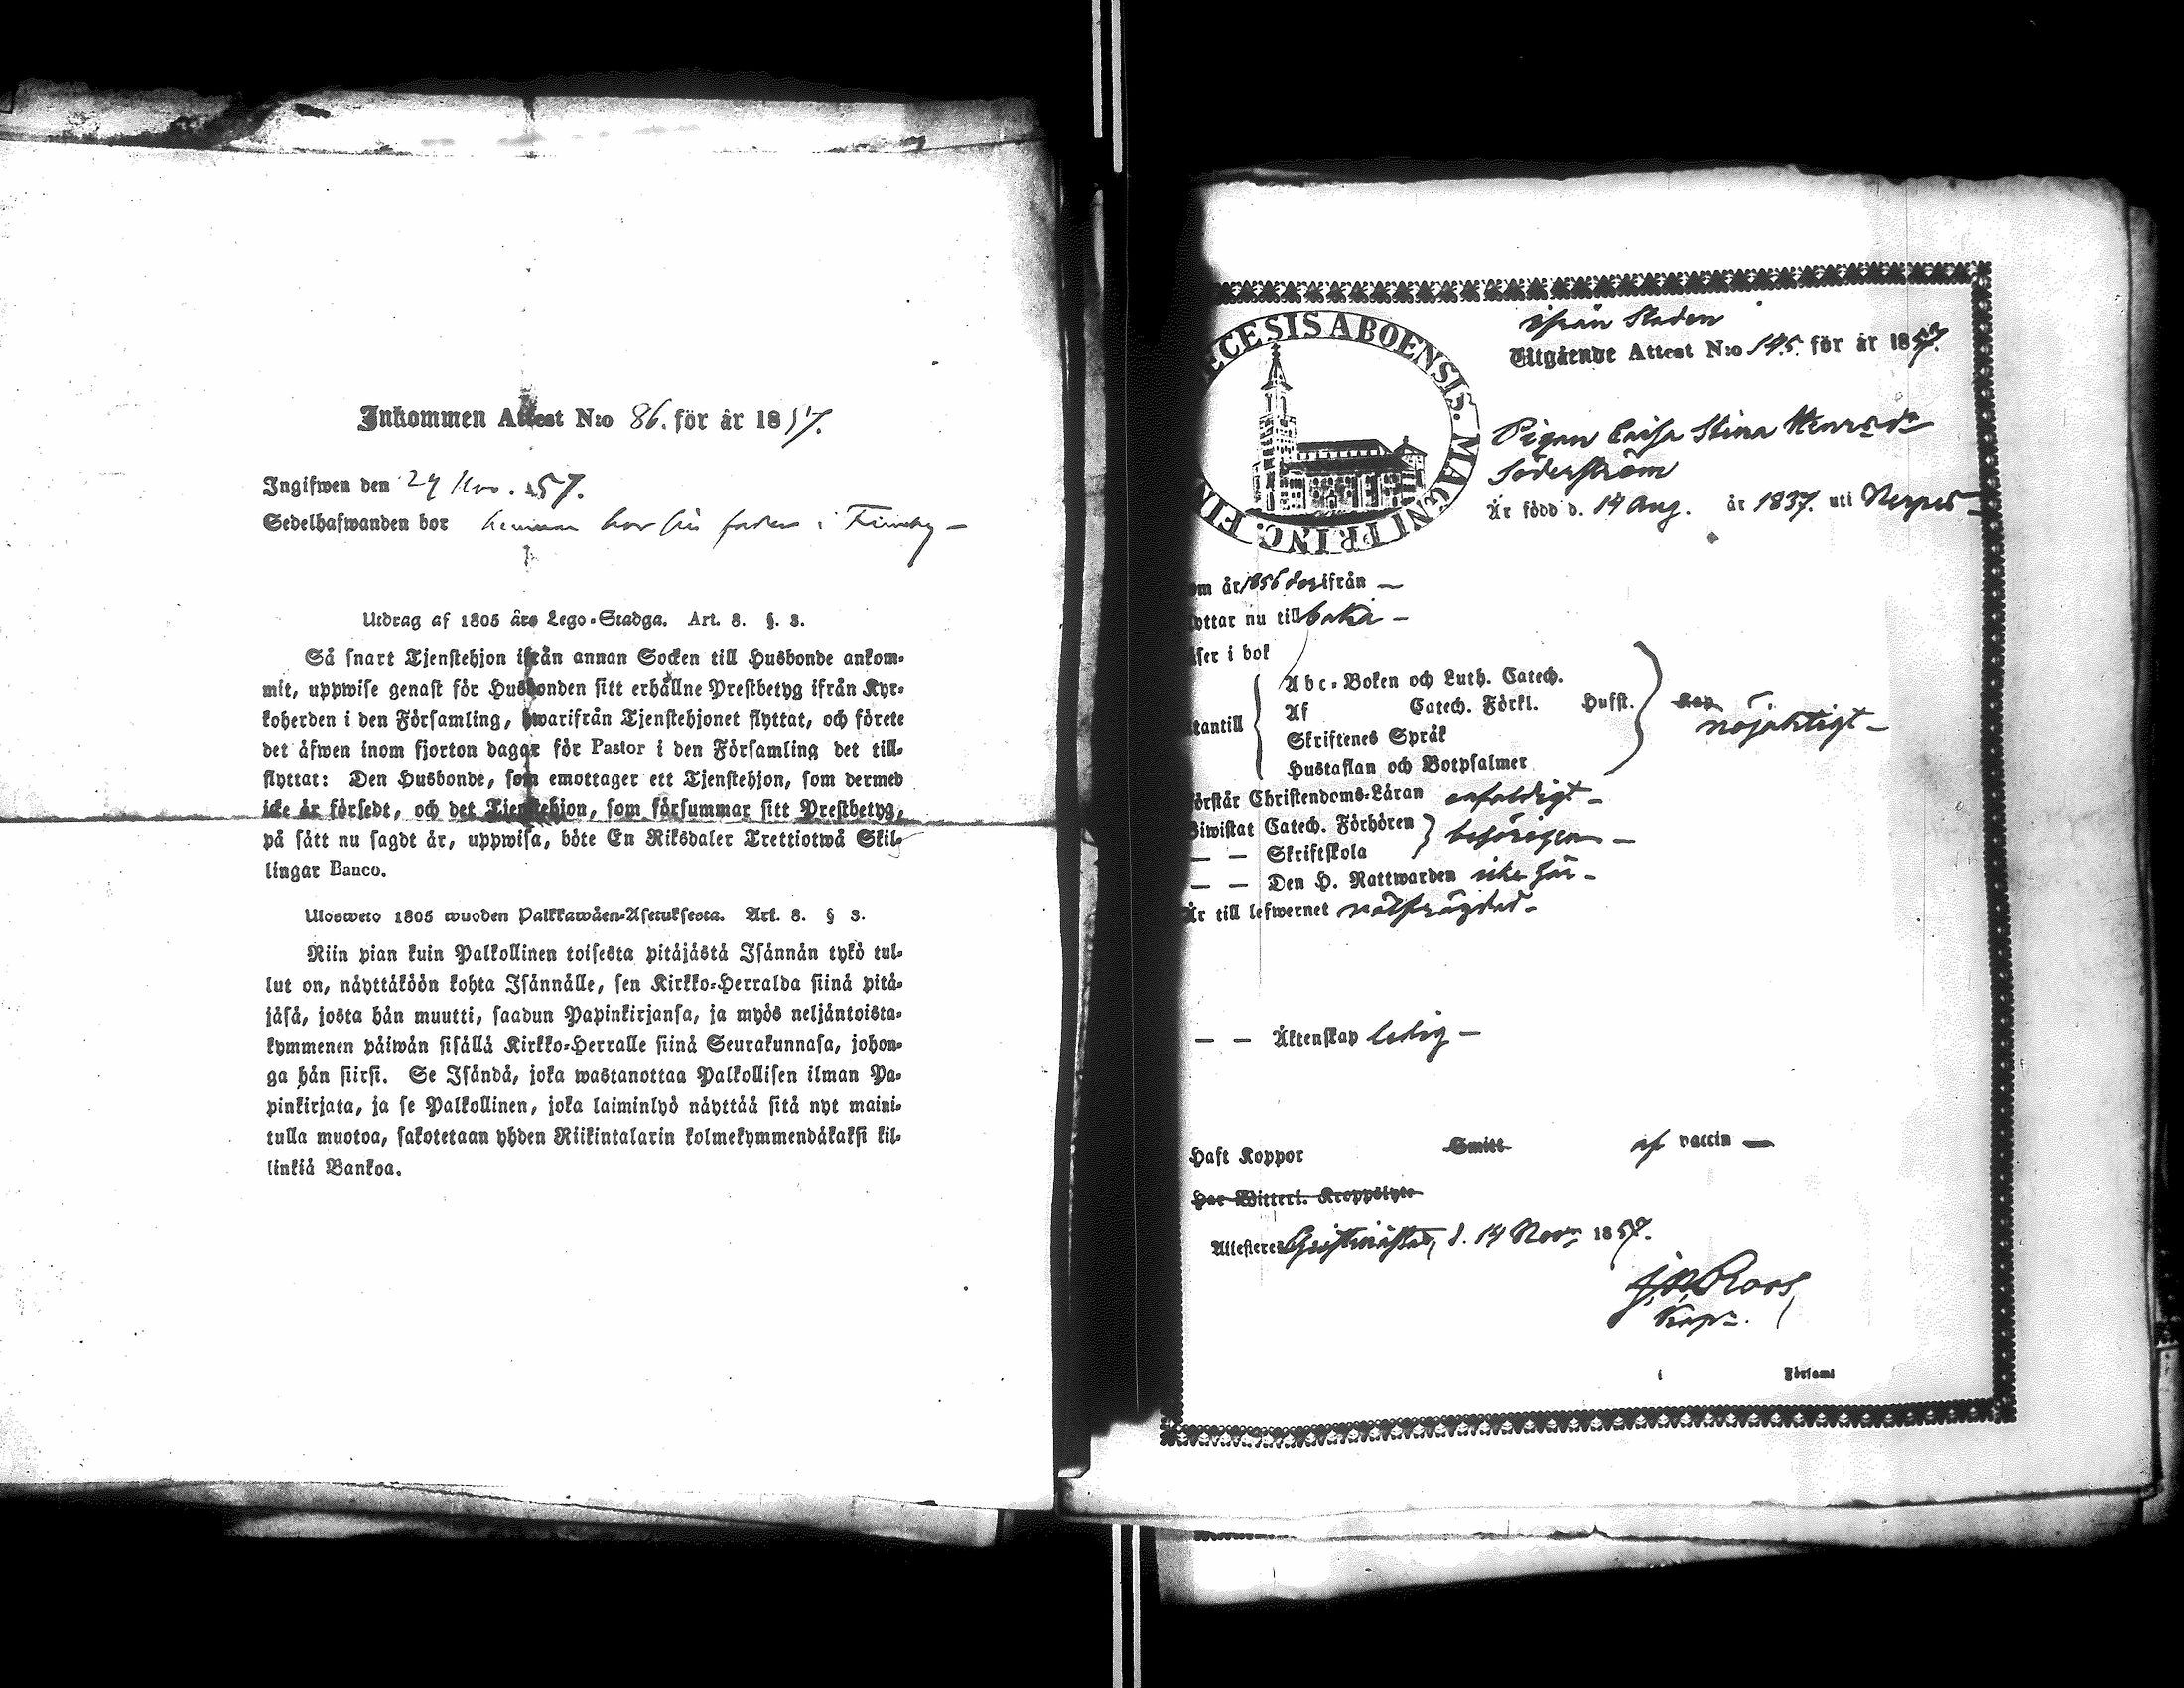 Inkommen Attest N:o 86. för år 1857.
Ingifwen den 29 Nov. 57.
Sedelhafwanden bor hemma hos sin fader i Finnby —
Utdrag af 1805 års Lego-Stadga. Art. 8. §. 3.
Så snart Tjenstehjon ifrån annan Socken till Husbonde ankom-
mit, uppwise genast för Husbonden sitt erhållne Prestbetyg ifrån Kyr-
koherden i den Församling, hwarifrån Tjenstehjonet flyttat, och förete
det äfwen inom fjorton dagar för Pastor i den Församling det till-
flyttat: Den Husbonde, som emottager ett Tjenstehjon, som dermed
icke är försedt, och det Tjenstehjon, som försummar sitt Prestbetyg,
på sätt nu sagdt är, uppwisa, böte En Riksdaler Trettiotwå Skil-
lingar Banco.
Ulosweto 1805 wuoden Palkkawäen-Asetuksesta. Art. 8. § 3.
Niin pian kuin Palkollinen toisesta pitäjästä Isännän tykö tul-
lut on, näyttäköön kohta Isännälle, sen Kirkko-Herralda siinä pitä-
jäsä, josta hän muutti, saadun Papinkirjansa, ja myös neljäntoista-
kymmenen päiwän sisällä Kirkko-Herralle siinä Seurakunnasa, johon-
ga hän siirsi. Se Isändä, joka wastanottaa Palkollisen ilman Pa-
pinkirjata, ja se Palkollinen, joka laiminlyö näyttää sitä nyt maini-
tulla muotoa, sakotetaan yhden Riikintalarin kolmekymmendäkaksi kil-
linkiä Bankoa.
ECESIS ABOENSIS. MAGNI PRINC. FIN
ifrån Staden
Utgående Attest N:o 145. för år 1857.
Pigan Caisa Stina Henrsdr
Söderström
Är född d. 14 Aug. år 1837. uti Nerpes —
om år 1856 derifrån —
lyttar nu till baka —
äser i bok
tantill
Abc-Boken och Luth. Catech.
Af Catech. Förkl. Hufst.
Skriftenes Språk
Hustaflan och Botpsalmer
nöjaktigt —
örstår Christendoms-Läran enfaldigt —
Biwistat Catech. Förhören
— — Skriftskola
behörigen —
— — Den H. Nattwarden icke här —
Är till lefwernet välfrägdad —
— — Äktenskap ledig —
Haft Koppor Smitt af vaccin —
Har Witterl. Kroppslyte
Attesterar Christinestad, d. 14 Novr 1857.
J. W. Roos,
Kapn.
i Församl